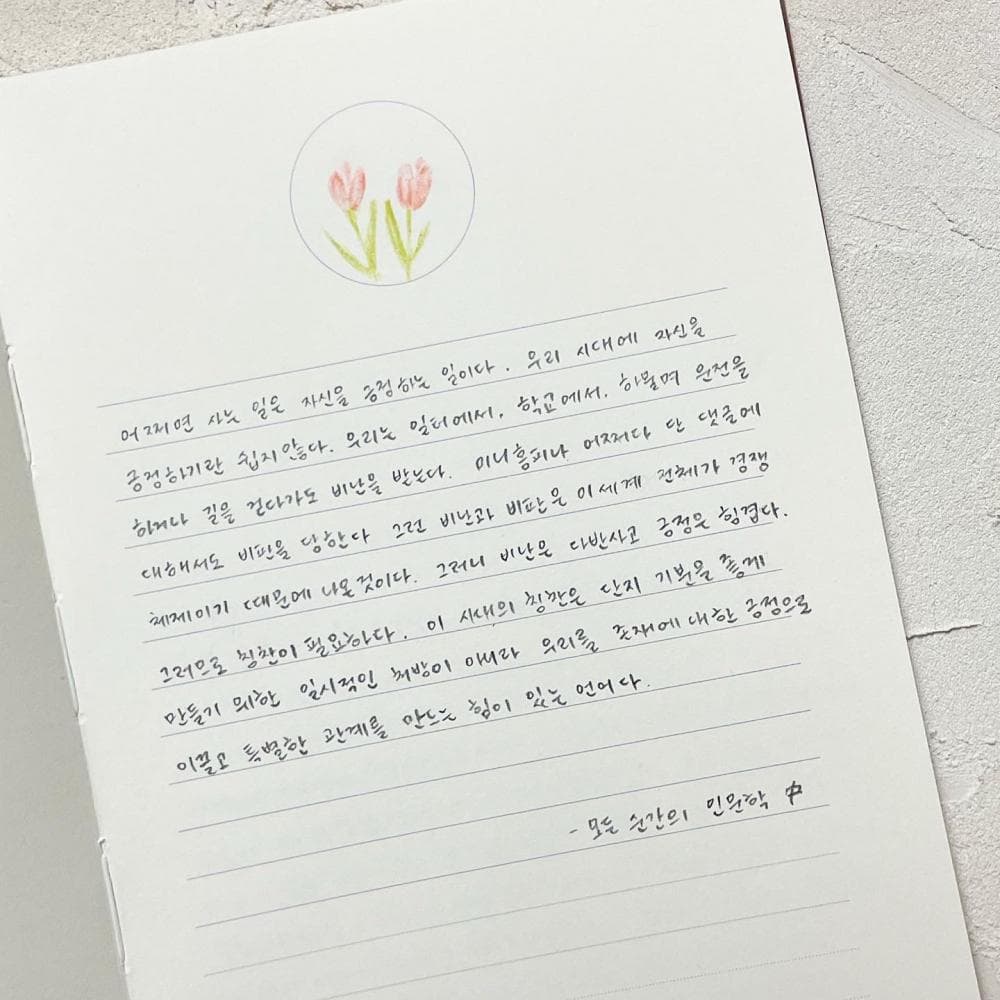 어쩌면 사는 일은 자신을 긍정하는 일이다. 우리 시대에 자신을
긍정하기란 쉽지않다. 우리는 일터에서, 학교에서, 하물며 운전을
하거나 길을 걷다가도 비난을 받는다. 미니홈피나 어쩌다 단 댓글에
대해서도 비판을 당한다 그런 비난과 비판은 이 세계 전체가 경쟁
체제이기 때문에 나온 것이다. 그러니 비난은 다반사고 긍정은 힘겹다.
그러므로 칭찬이 필요하다. 이 시대의 칭찬은 단지 기분을 좋게
만들기 위한 일시적인 처방이 아니라 우리를 존재에 대한 긍정으로
이끌고 특별한 관계를 만드는 힘이 있는 언어다.
- 모든 순간의 인문학 中